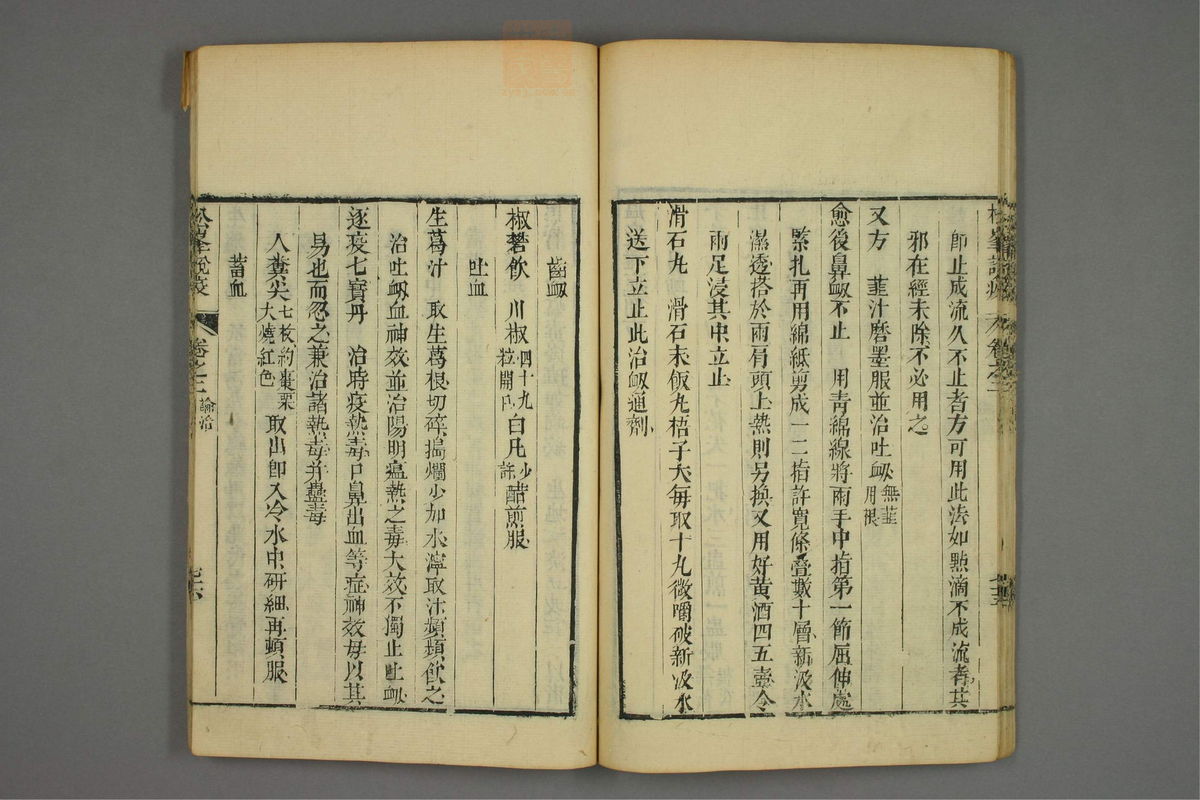 即止成流久不止者方可用此法如點滴不成流者其
邪在經未除不必用之
又方　韮汁磨墨服並治吐衂無韮用根
愈後鼻衂不止　用青綿線將兩手中指第一節屈伸處
緊扎再用綿紙剪成一二指許寬條疊數十層新汲水
濕透搭於兩肩頭上熱則另換又用好黄酒四五壺令
兩足浸其中立止
滑石丸　滑石末飯丸梧子大每取十丸微嚼破新汲水
送下立止此治衂通劑
齒衂
椒礬飲　川椒四十九粒開口白凡少許醋煎服
吐血
生葛汁　取生葛根切碎搗爛少加水濘取汁頻頻飲之
治吐衂血神效並治陽明瘟熱之毒大效不獨止吐衂
逐疫七寶丹　治時疫熱毒口鼻出血等症神效毋以其
易也而忽之兼治諸熱毒并蠱毒
人糞尖七枚約棗栗大燒紅色取出即入冷水中研細再頓服
蓄血
松峯說疫　卷之三　論治　七六